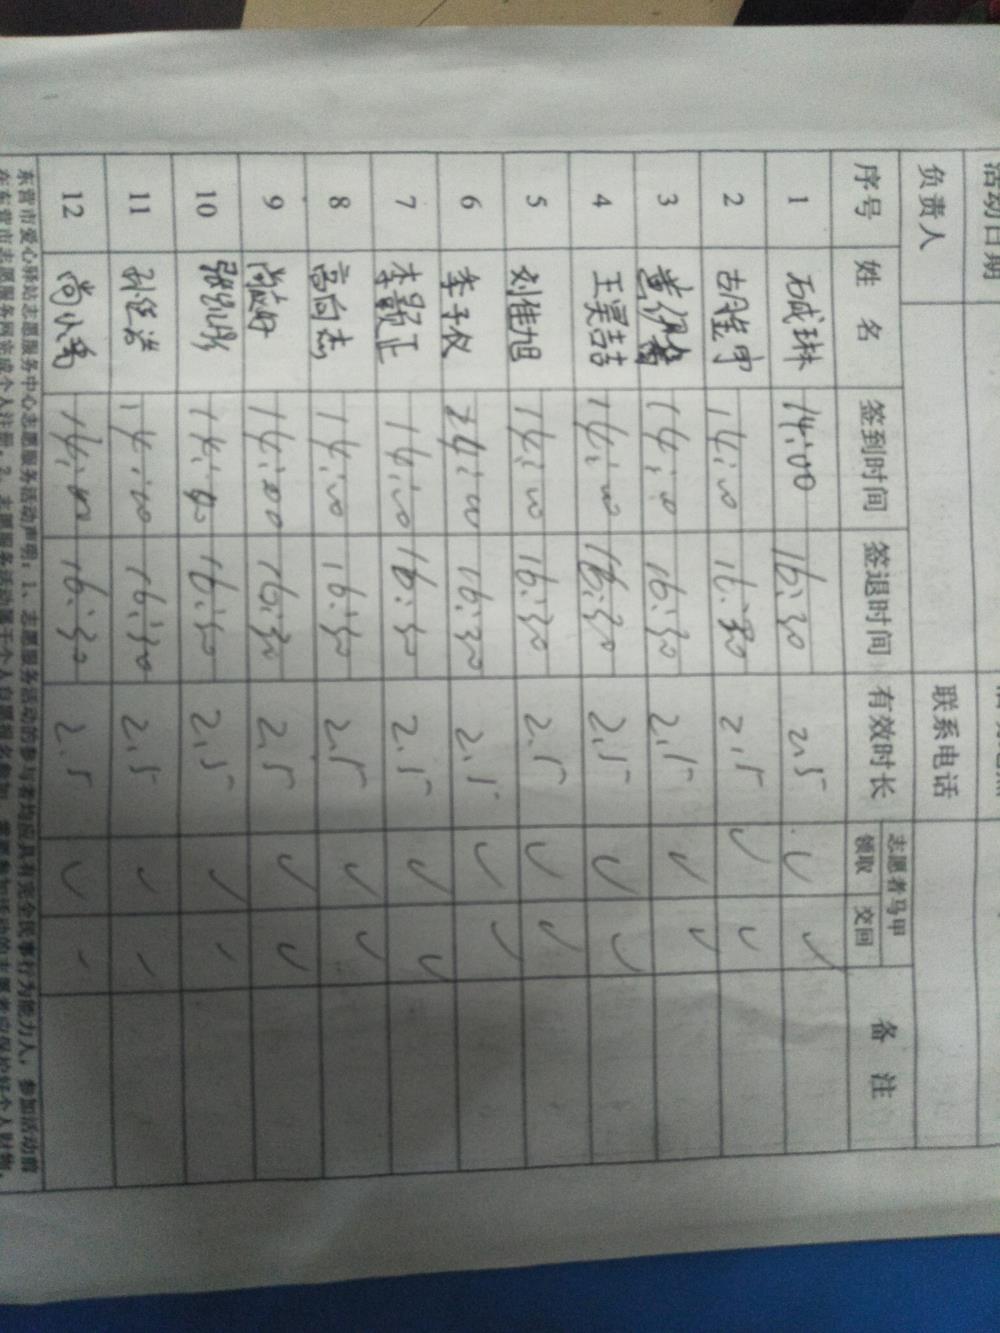 活动日期
负责人 联系电话
序号 姓 名 签到时间 签退时间 有效时长 志愿者马甲 备 注
领取 交回
1 石咸琳 14:00 16:30 2.5 ✓ ✓
2 14:00 16:30 2.5 ✓ ✓
3 14:00 16:30 2.5 ✓ ✓
4 王昊喆 14:00 16:30 2.5 ✓ ✓
5 刘佳旭 14:00 16:30 2.5 ✓ ✓
6 李子仪 14:00 16:30 2.5 ✓ ✓
7 李颢正 14:00 16:30 2.5 ✓ ✓
8 高向杰 14:00 16:30 2.5 ✓ ✓
9 14:00 16:30 2.5 ✓ ✓
10 14:00 16:30 2.5 ✓ ✓
11 14:00 16:30 2.5 ✓ ✓
12 尚小禹 14:00 16:30 2.5 ✓ ✓
东营市爱心驿站志愿服务中心志愿服务活动声明：1、志愿服务活动的参与者均应具有完全民事行为能力人，参加活动前
在东营市志愿服务网完成个人注册。2、志愿服务活动属于个人自愿报名参加，